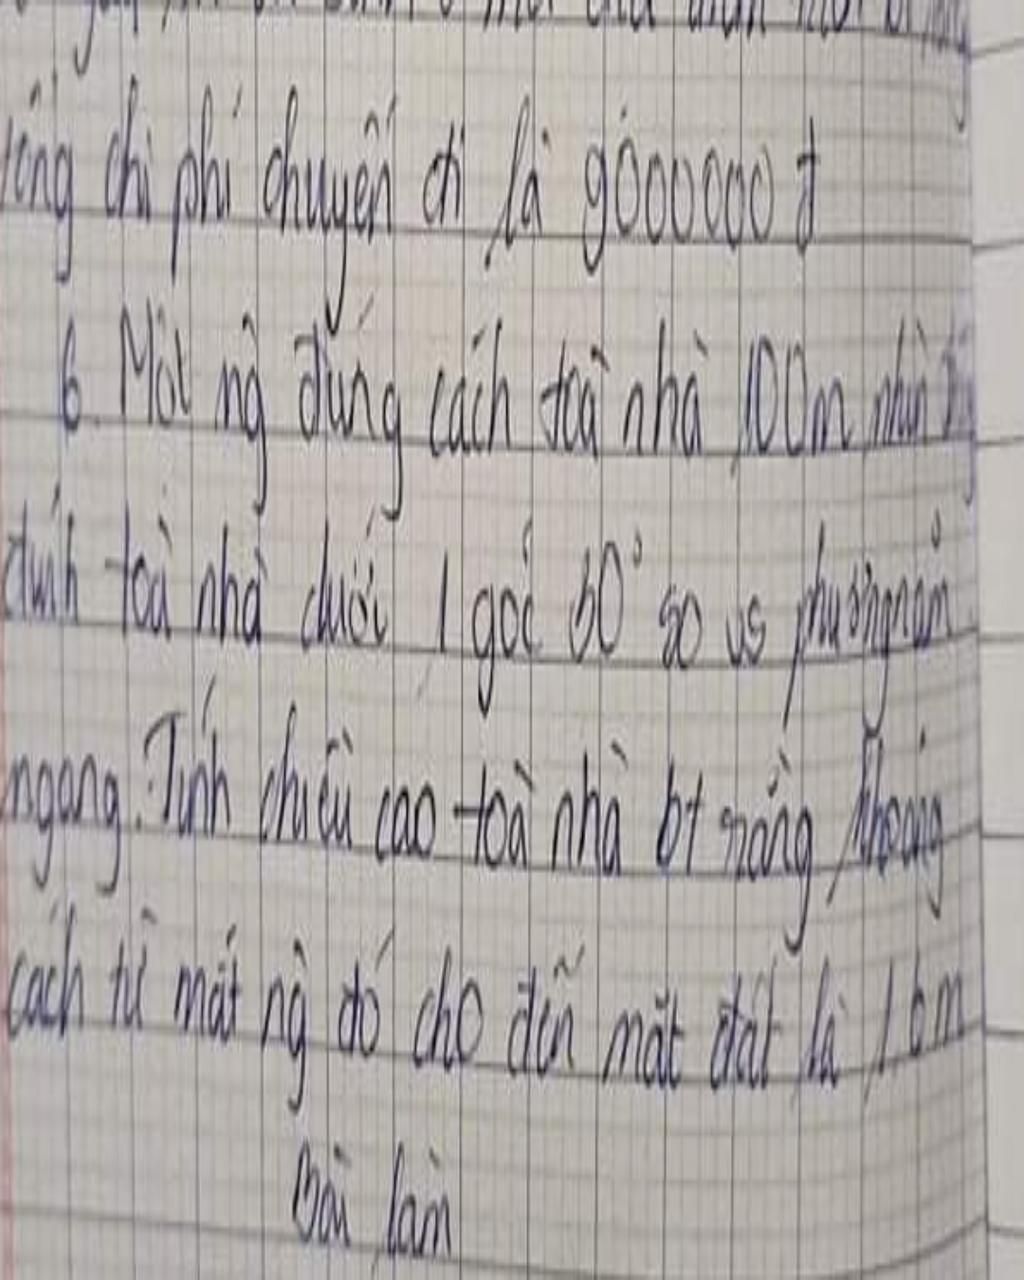 tổng chi phí chuyến đi là 9000000 đ
6. Một ng đứng cách toà nhà 100m nhìn
đỉnh toà nhà dưới 1 góc so vs phương nằm
ngang. Tính chiều cao toà nhà bt rằng khoảng
cách từ mắt ng đó cho đến mặt đất là 1,6m
Bài làm